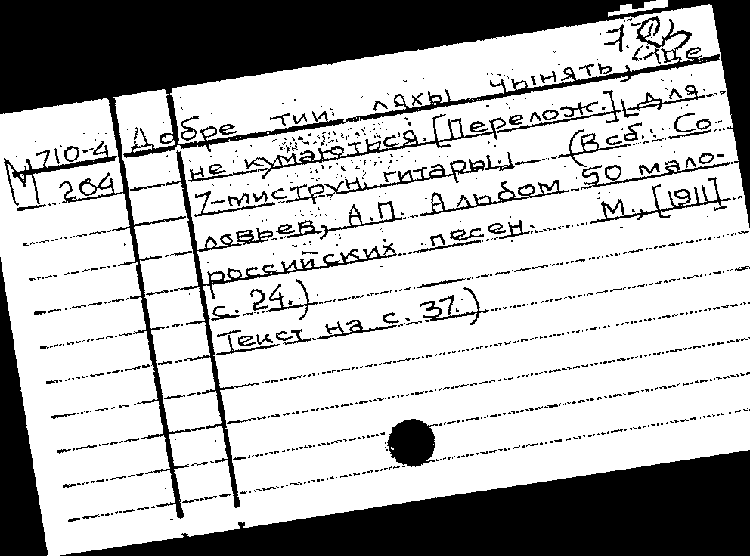 783
М 710-4
264
Добре тии ляхы чынять, ще
не кумаються. [Перелож.] для
7-миструн. гитары.
(В сб. Со-
ловьев, А.П. Альбом 50 мало-
российских песен. М., [1911]
с. 24.)
Текст на с. 37.)